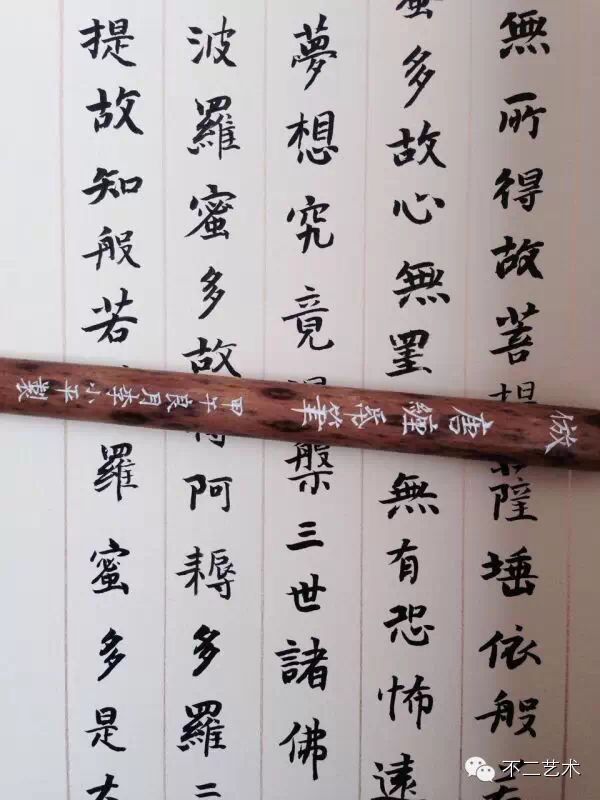 無所得故菩提薩埵依般
蜜多故心無罣無有恐怖遠
夢想究竟槃三世諸佛
波羅蜜多故得阿耨多羅三
提故知般若羅蜜多是大
仿唐纏帋筆 甲午良月李小平製
不二艺术